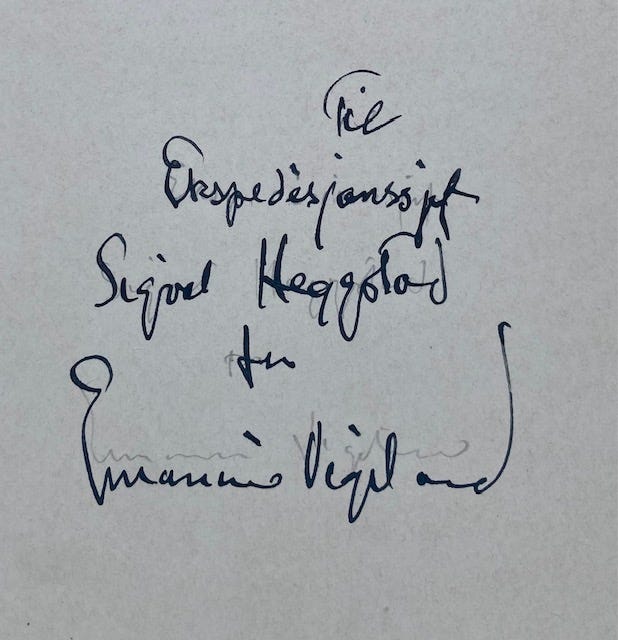 Til
Ekspedisjonssjef
Heggstad
fra
Emanuel Vigeland